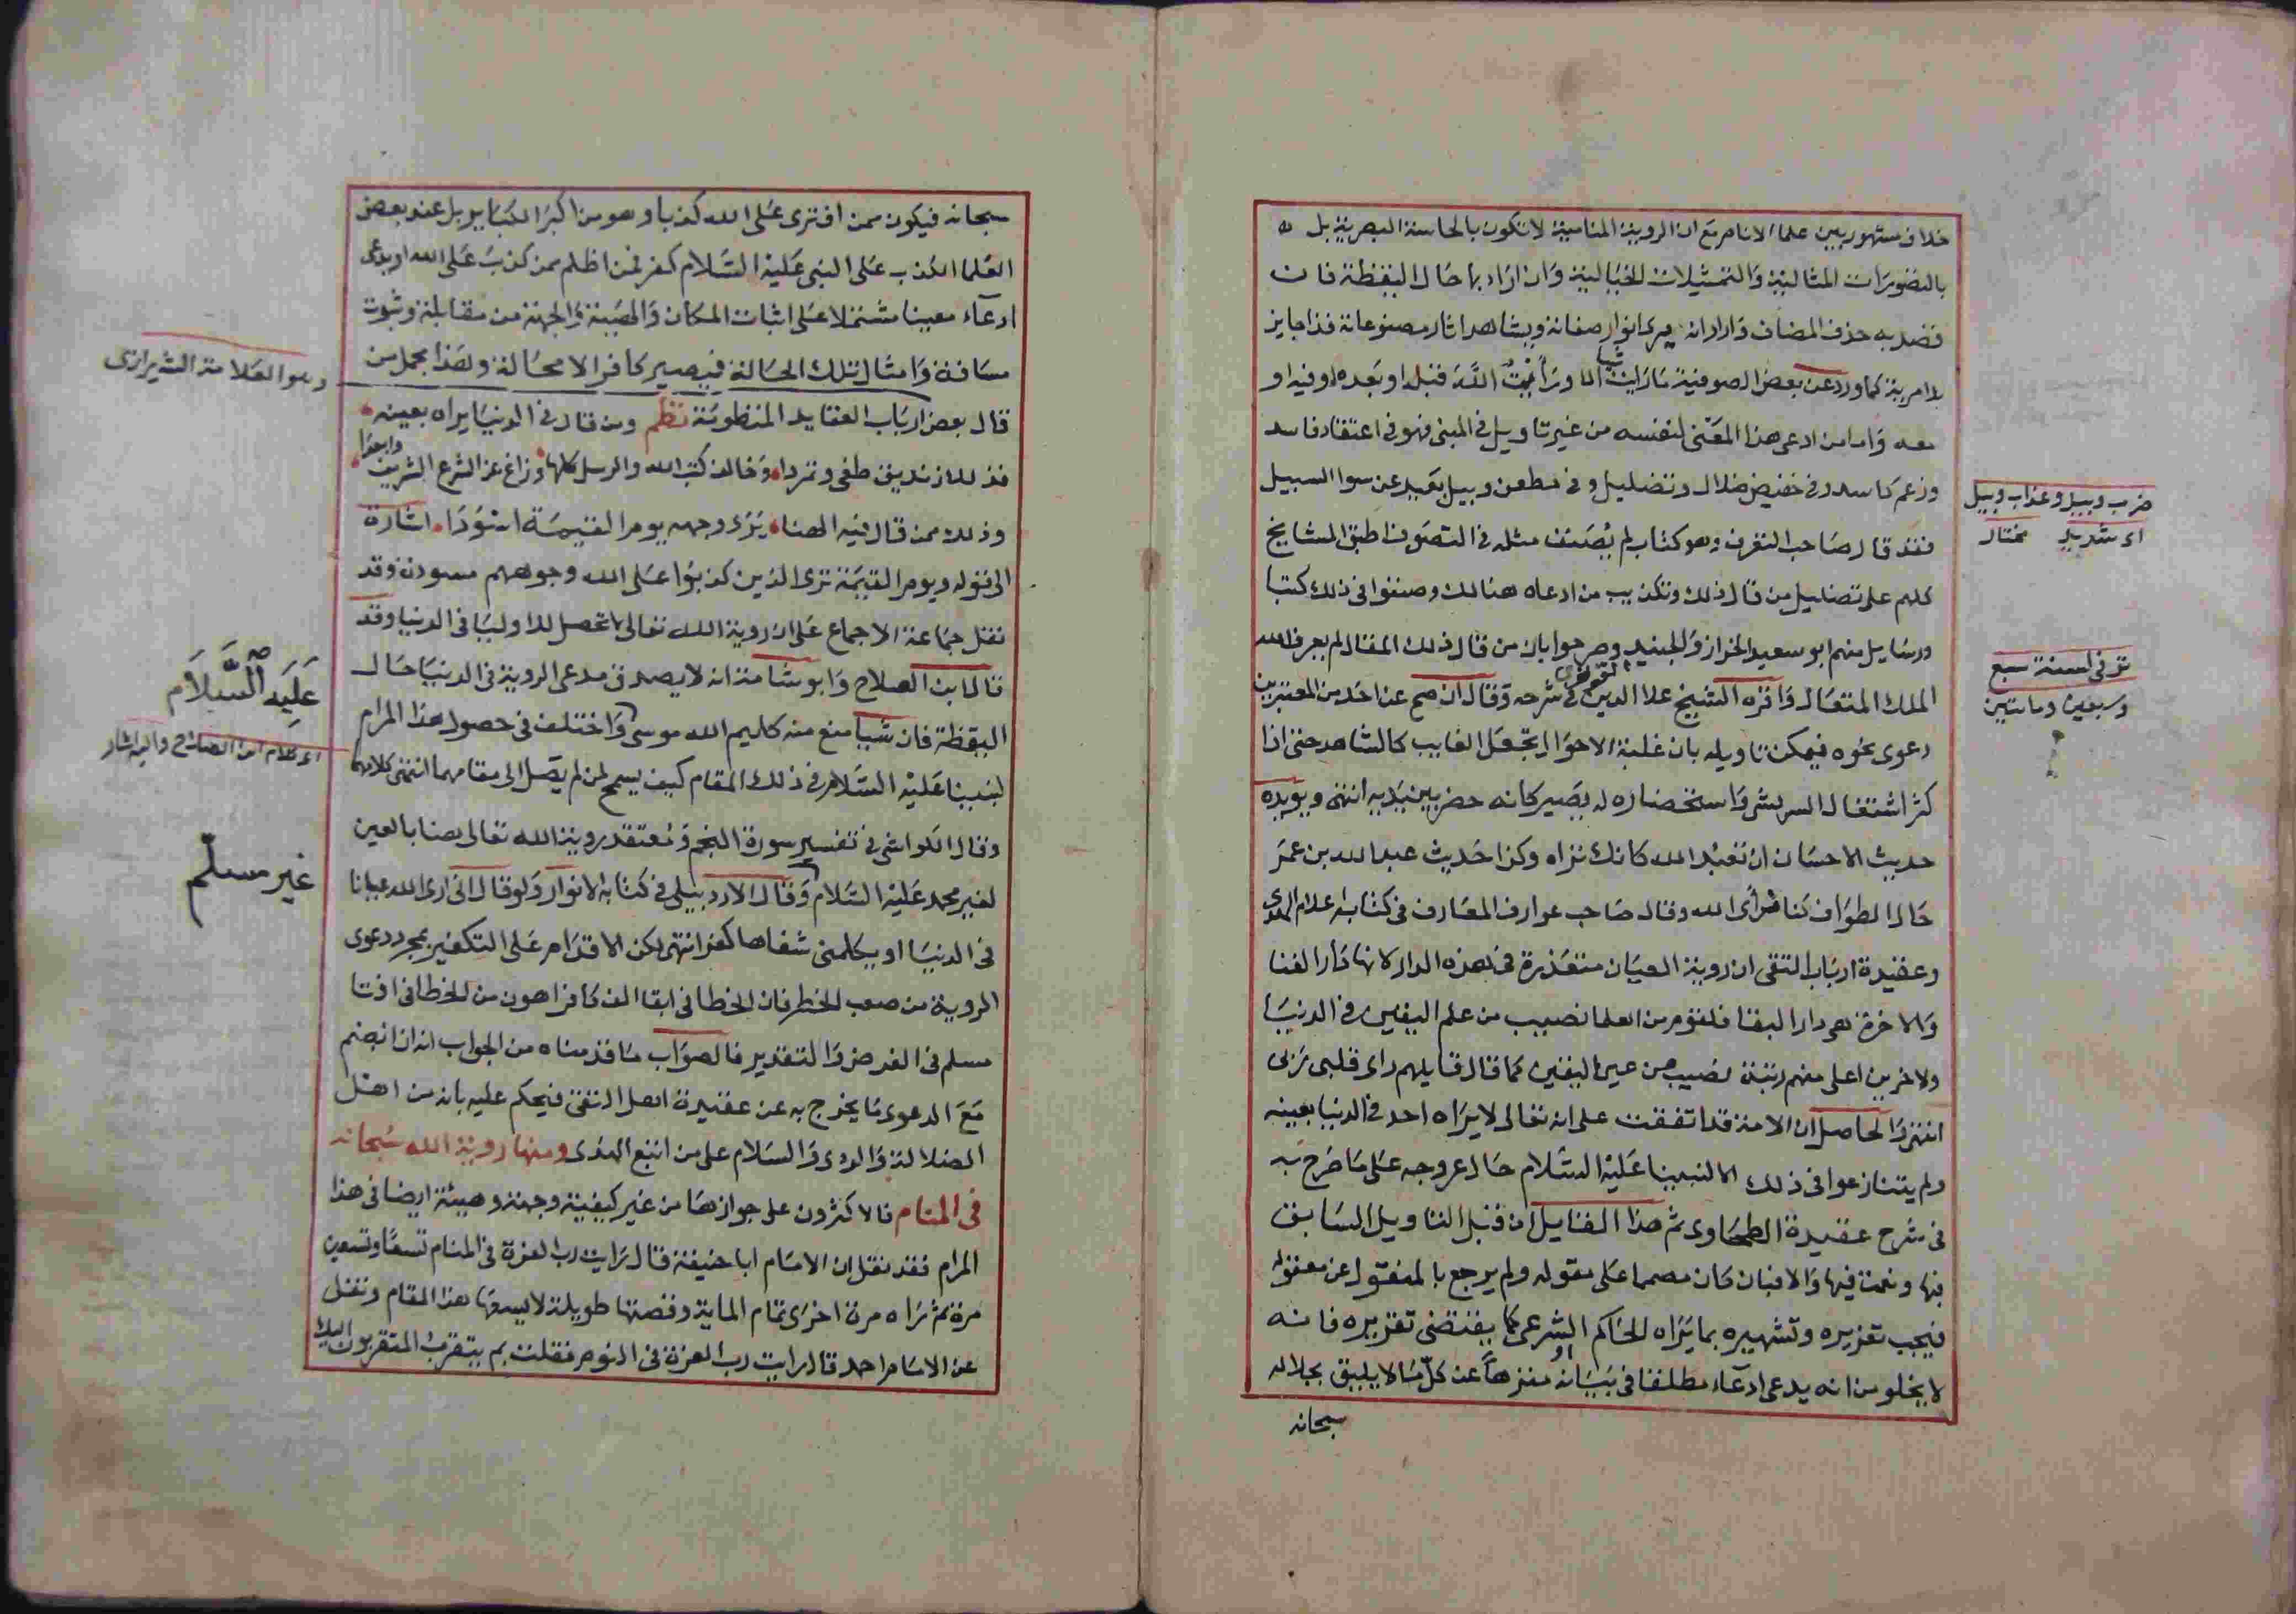 خلاف مشهور بين علماء الانام مع ان الروية المنامية لا تكون بالحاسة البصرية بل
بالتصويرات المثالية والتمثيلات الخيالية وان اراد بها حال اليقظة فان
قصد به حذف المضاف واراد انه يرى انوار صفاته ويشاهد اثار مصنوعاته فذا جايز
بلا مرية كما ورد عن بعض الصوفية ما رايت شيا الا ورأيت الله قبله او بعده او فيه او
معه واما من ادعى هذا المعنى لنفسه من غير تاويل في المبنى فهو في اعتقاد فاسد
وزعم كاسد وفي حضيض ضلال وتضليل وفي مطعن وبيل بعيد عن سوا السبيل
فقد قال صاحب التعرف وهو كتاب لم يصنف مثله في التصوف اطبق المشايخ
كلهم على تضليل من قال ذلك وتكذيب من ادعاه هنالك وصنفوا في ذلك كتبا
ورسايل منهم ابو سعيد الخراز والجنيد وصرحوا بان من قال ذلك المقال لم يعرف الله
الملك المتعال واقره الشيخ علا الدين القونوى في شرحه وقال ان صح عن احد من المعتبرين
دعوى نحوه فيمكن تاويله بان غلبة الاحوال تجعل الغايب كالشاهد حتى اذا
كثر اشتغال السر بشى واستحضاره له يصير كانه حضر بين يديه انتهى ويويده
حديث الاحسان ان تعبد الله كانك تراه وكذا حديث عبد الله بن عمر
حال الطواف كنا نترأى الله وقال صاحب عوارف المعارف في كتابه اعلام الهدى
وعقيدة ارباب التقى ان روية العيان متعذرة في هذه الدار لانها دار الفنا
والاخرة هي دار البقا فلقوم من العلما نصيب من علم اليقين في الدنيا
ولاخرين اعلى منهم رتبة نصيب من عين اليقين كما قال قايلهم راى قلبى ربى
انتهى والحاصل ان الامة قد اتفقت على انه تعالى لا يراه احد في الدنيا بعينه
ولم يتنازعوا في ذلك الا لنبينا عليه السلام حال عروجه على ما صرح به
في شرح عقيدة الطحاوى ثم هذا القايل ان قبل التاويل السابق
فبها ونعمت فيها والا فبان كان مصمما على مقوله ولم يرجع بالمنقول عن معقوله
فيجب تعزيره وتشهيره بما يراه الحاكم الشرعى كما يقتضى تقريره فانه
لا يخلو من انه يدعى ادعآء مطلقا في بيانه او منزها عن كل ما لا يليق بجلاله
سبحانه
ضرب وبيل وعذاب وبيل
اى شديد مختار
توفي اسنة سبع
وسبعين ومايتين
سبحانه فيكون ممن افترى على الله كذبا وهو من اكبر الكباير بل عند بعض
العلما الكذب على النبى عليه السلام كفر فمن اظلم ممن كذب على الله او يدعى
ادعآء معينا مشتملا على اثبات المكان والهيية والجهة من مقابلة وثبوت
مسافة وامثال تلك الحالة فيصير كافرا لا محالة وهذا مجمل من
قال بعض ارباب العقايد المنظومة نظم ومن قال في الدنيا يراه بعينه
فذلك زنديق طغى وتمردا وخالف كتب الله والرسل كلها وزاغ عن الشرع الشريف وابعدا
وذلك ممن قال فيه الهنا يرى وجهه يوم القيمة اسودا اشارة
الى قوله ويوم القيمة ترى الذين كذبوا على الله وجوههم مسودة وقد
نقل جماعة الاجماع على ان روية الله تعالى لا تحصل للاوليا في الدنيا وقد
قال ابن الصلاح وابو شامة انه لا يصدق مدعى الروية في الدنيا حال
اليقظة فان شيا منع منه كليم الله موسى واختلف في حصول هذا المرام
لنبينا عليه السلام في ذلك المقام كيف يسمح لمن لم يصل الى مقامهما انتهى كلامهما
وقال الكواشى في تفسير سورة النجم ومعتقد روية الله تعالى هنا بالعين
لغير محمد عليه السلام وقال الاردبيلى في كتابه الانوار ولو قال انى ارى الله عيانا
في الدنيا او يكلمنى شفاها كفر انتهى لكن الاقدام على التكفير بمجرد دعوى
الروية من صعب الخطر فان الخطا في ابقا الف كافر اهون من الخطا في افنا
مسلم في الفرض والتقدير فالصواب ما قدمناه من الجواب انه ان انضم
مع الدعوى ما يخرج به عن عقيدة اهل التقى فيحكم عليه بانه من اهل
الضلالة والردى والسلام على من اتبع الهدى ومنها روية الله سبحانه
في المنام فالاكثرون على جوازها من غير كيفية وجهة وهيئة ايضا في هذا
المرام فقد نقل ان الامام ابا حنيفة قال رايت رب العزة في المنام تسعا وتسعين
مرة ثم رآه مرة اخرى تمام الماية وقصتها طويلة لا يسعها هذا المقام ونقل
عن الامام احمد قال رايت رب العزة في النوم فقلت بم يتقرب المتقربون اليك
وهو العلامة الشيرازى
عليه السلام صه
اى كلام ابن الصلاح وابى شامة
غير مسلم